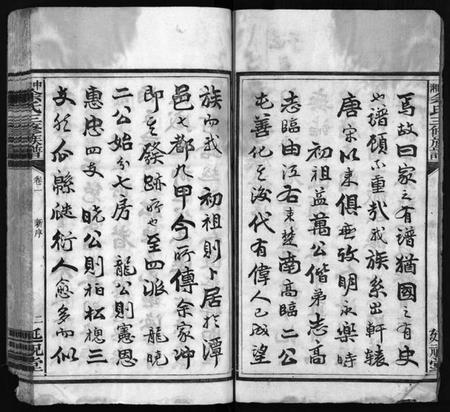 焉故曰家之有譜猶國之有史
也譜顧不重哉我族系出軒轅
唐宗以來俱無攷明永樂時
初祖益萬公偕弟志高
志臨由江右東楚南高臨二公
屯善化之後代有偉人已成望
族而我 初祖則卜居於潭
邑七都九甲今所傳余家沖
即其發跡所也至四派 龍曉
二公始分七房 龍公則憲恩
惠忠四支 曉公則柏松檍三
支於瓜縣瓞衍人愈多而似
三修族譜
卷一
新序
二